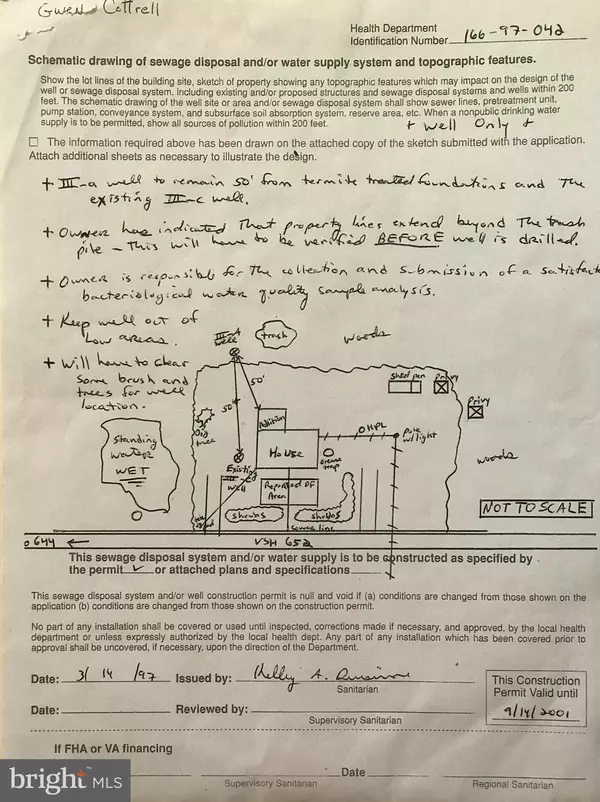 Gwen Cottrell
Health Department
Identification Number 166-97-042
Schematic drawing of sewage disposal and/or water supply system and topographic features.
Show the lot lines of the building site, sketch of property showing any topographic features which may impact on the design of the
well or sewage disposal system, including existing and/or proposed structures and sewage disposal systems and wells within 200
feet. The schematic drawing of the well site or area and/or sewage disposal system shall show sewer lines, pretreatment unit,
pump station, conveyance system, and subsurface soil absorption system, reserve area, etc. When a nonpublic drinking water
supply is to be permitted, show all sources of pollution within 200 feet.
+ Well Only +
☐ The information required above has been drawn on the attached copy of the sketch submitted with the application.
Attach additional sheets as necessary to illustrate the design.
+ III-a well to remain 50' from termite treated foundations and The
existing III-c well.
+ Owner has indicated That property lines extend beyond The trash
pile - This will have to be verified BEFORE well is drilled.
+ Owner is responsible for The collection and submission of a satisfact
bacteriological water quality sample analysis.
+ Keep well out of
Low areas.
III-A
well
trash
woods
+ Will have to clear
Some brush and
trees for well
location.
50'
Shed pen
Privy
Privy
50'
Addition
OHPL
Pole
w/light
Standing
water
WET
tree
House
Grease
trap
woods
Existing
III-C
Well
Reported DF
Area
Shrubs
Shrubs
Sewer line
NOT TO SCALE
0644 ←
VSH 652
This sewage disposal system and/or water supply is to be constructed as specified by
the permit ✓ or attached plans and specifications
This sewage disposal system and/or well construction permit is null and void if (a) conditions are changed from those shown on the
application (b) conditions are changed from those shown on the construction permit.
No part of any installation shall be covered or used until inspected, corrections made if necessary, and approved, by the local health
department or unless expressly authorized by the local health dept. Any part of any installation which has been covered prior to
approval shall be uncovered, if necessary, upon the direction of the Department.
Date: 3/14/97 Issued by: Kelly A.
Sanitarian
This Construction
Permit Valid until
9/14/2001
Date: Reviewed by:
Supervisory Sanitarian
If FHA or VA financing
Date
Supervisory Sanitarian
Regional Sanitarian
bright MLS